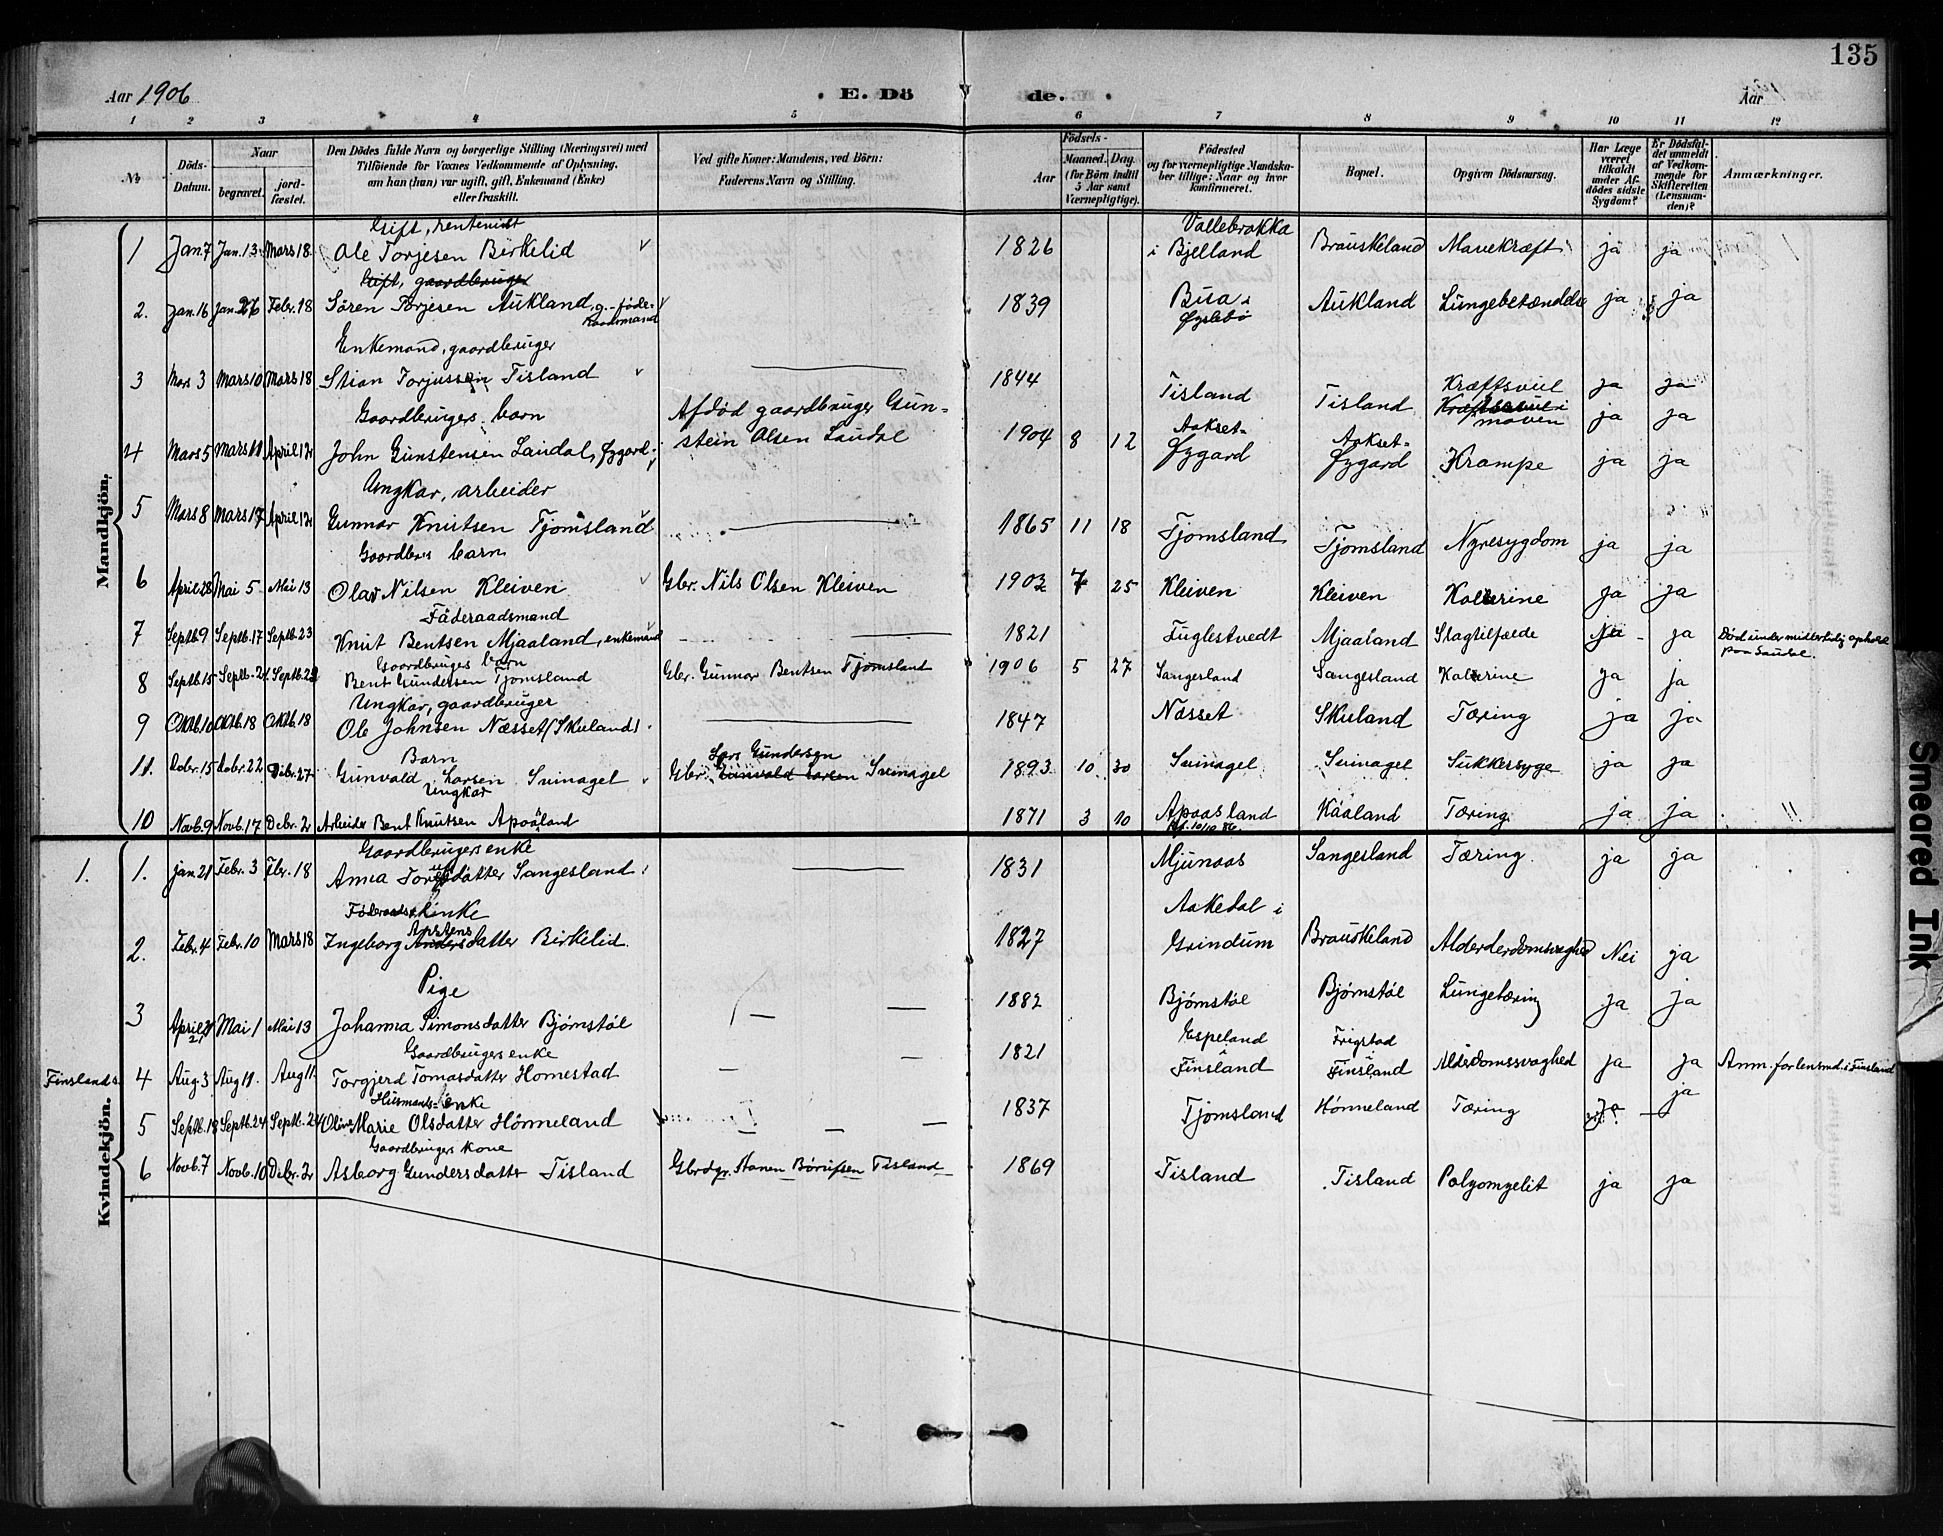 135
Aar 1906 . E. Dö de. . Aar
1 2 3 4 5 6 7 8 9 10 11 12
№ Döds-Datum. Naar begravet. jordfæstet. Den Dödes fulde Navn og borgerlige Stilling (Næringsvei) med Tilföiende for Voxnes Vedkommende af Oplysning, om han (hun) var ugift, gift, Enkemand (Enke) eller fraskilt. Ved gifte Koner: Mandens, ved Börn: Faderens Navn og Stilling. Födsels- Aar Maaned. Dag. (for Börn indtil 5 Aar samt Værnepligtige). Födested og for værnepligtige Mandskaber tillige: Naar og hvor konfirmeret. Bopæl. Opgiven Dödsaarsag. Har Læge været tilkaldt under Afdödes sidste Sygdom? Er Dödsfaldet anmeldt af Vedkommende for Skifteretten (Lensmanden)? Anmærkninger.
Mandkjön.
Gift, rentenist Vallebrokka
1 Jan. 7 Jan. 13 Mars 18 Ole Torjesen Birkelid 1826 i Bjelland Brauskeland Mavekræft ja ja
Gift, gaardbruger
2. Jan. 16 Jan. 26 Febr. 18 Sören Torjesen Aukland, g. føderaadsmand 1839 Bua i Øyslebö Aukland Lungebetændelse ja ja
Enkemand, gaardbruger
3 Mars 3 Mars 10 Mars 18 Stian Torjussen Tisland 1844 Tisland Tisland Kræftsvul Kræftsvul i maven ja ja ja ja
Gaardbrugers barn Afdöd gaardbruger Gun-
4 Mars 5 Mars 11 April 12 John Gunstensen Laudal, Øygard stein Olsen Laudal 1904 8 12 Aakset-Øygard Aakset-Øygard Krampe ja ja
Ungkar, arbeider
5 Mars 8 Mars 17 April 12 Gunnar Knutsen Tjomsland 1865 11 18 Tjomsland Tjomsland Nyresygdom ja ja
Gaardbrs barn
6 April 28 Mai 5 Mai 13 Olav Nilsen Kleiven Gbr. Nils Olsen Kleiven 1903 7 25 Kleiven Kleiven ja ja
Föderaadsmand
7 Septb. 9 Septb. 17 Septb. 23 Knut Bentsen Mjaaland, enkemand 1821 Fuglestvedt Mjaaland Slagtilfælde Ja ja Död under midlertidig ophold paa Laudal.
Gaardbrugers barn
8 Septb. 15 Septb. 21 Septb. 23 Bent Gundersen Tjomsland Gbr. Gunnar Bentsen Tjomsland 1906 5 27 Sangesland Sangesland ja ja
Ungkar, gaardbruger
9 Oktb. 10 Oktb. 18 Oktb. 18 Ole Johnsen Næsset (Skuland) 1847 Næsset Skuland Tæring ja ja
Barn Lars Gundersen
11. Debr. 15 Debr. 22 Debr. 27 Gunvald Larsen Svinagel Gbr. Gunvald Larsen Svinagel 1893 10 30 Svinagel Svinagel Sukkersyge ja ja
Ungkar
10 Novb. 9 Novb. 17 Debr. 2 Arbeider Bent Knutsen Apoäland 1871 3 10 Apoasland Kf. 10/10 86 Kaaland Tæring ja ja "
Kvindekjön.
Gaardbrugers enke
1. 1. Jan. 21 Febr. 3 Fbr. 18 Anna datter Sangesland 1831 Mjunaas Sangesland Tæring ja ja
Föderaads enke Aakedal i
2. Febr. 4 Febr. 10 Mars 18 Ingeborg Andersdatter Birkelid 1827 Grindum Brauskeland Alderderdomsvaghed Nei ja
Pige
3 April 21 Mai 1 Mai 13 Johanna Simonsdatter Bjørnstøl 1882 Bjørnstøl Bjørnstøl Lungetæring ja ja
Gaardbrugers enke Espeland Frigstad
Finslands 4 Aug. 3 Aug 11. Aug 11 Torgjerd Tomasdatter Homestad 1821 Finsland Finsland Alderdomssvaghed ja ja Anm. for lensmd. i Finsland
Husmands enke
5 Septb. 18 Septb. 24 Septb. 24 Oline Marie Olsdatter Hönneland 1837 Tjomsland Hönneland Tæring Ja ja
Gaardbrugers kone
6 Novb. 7 Novb. 10 Debr. 2 Asborg Gundersdatter Tisland Tisland 1869 Tisland Tisland Polyomyelit ja ja
Smeared Ink